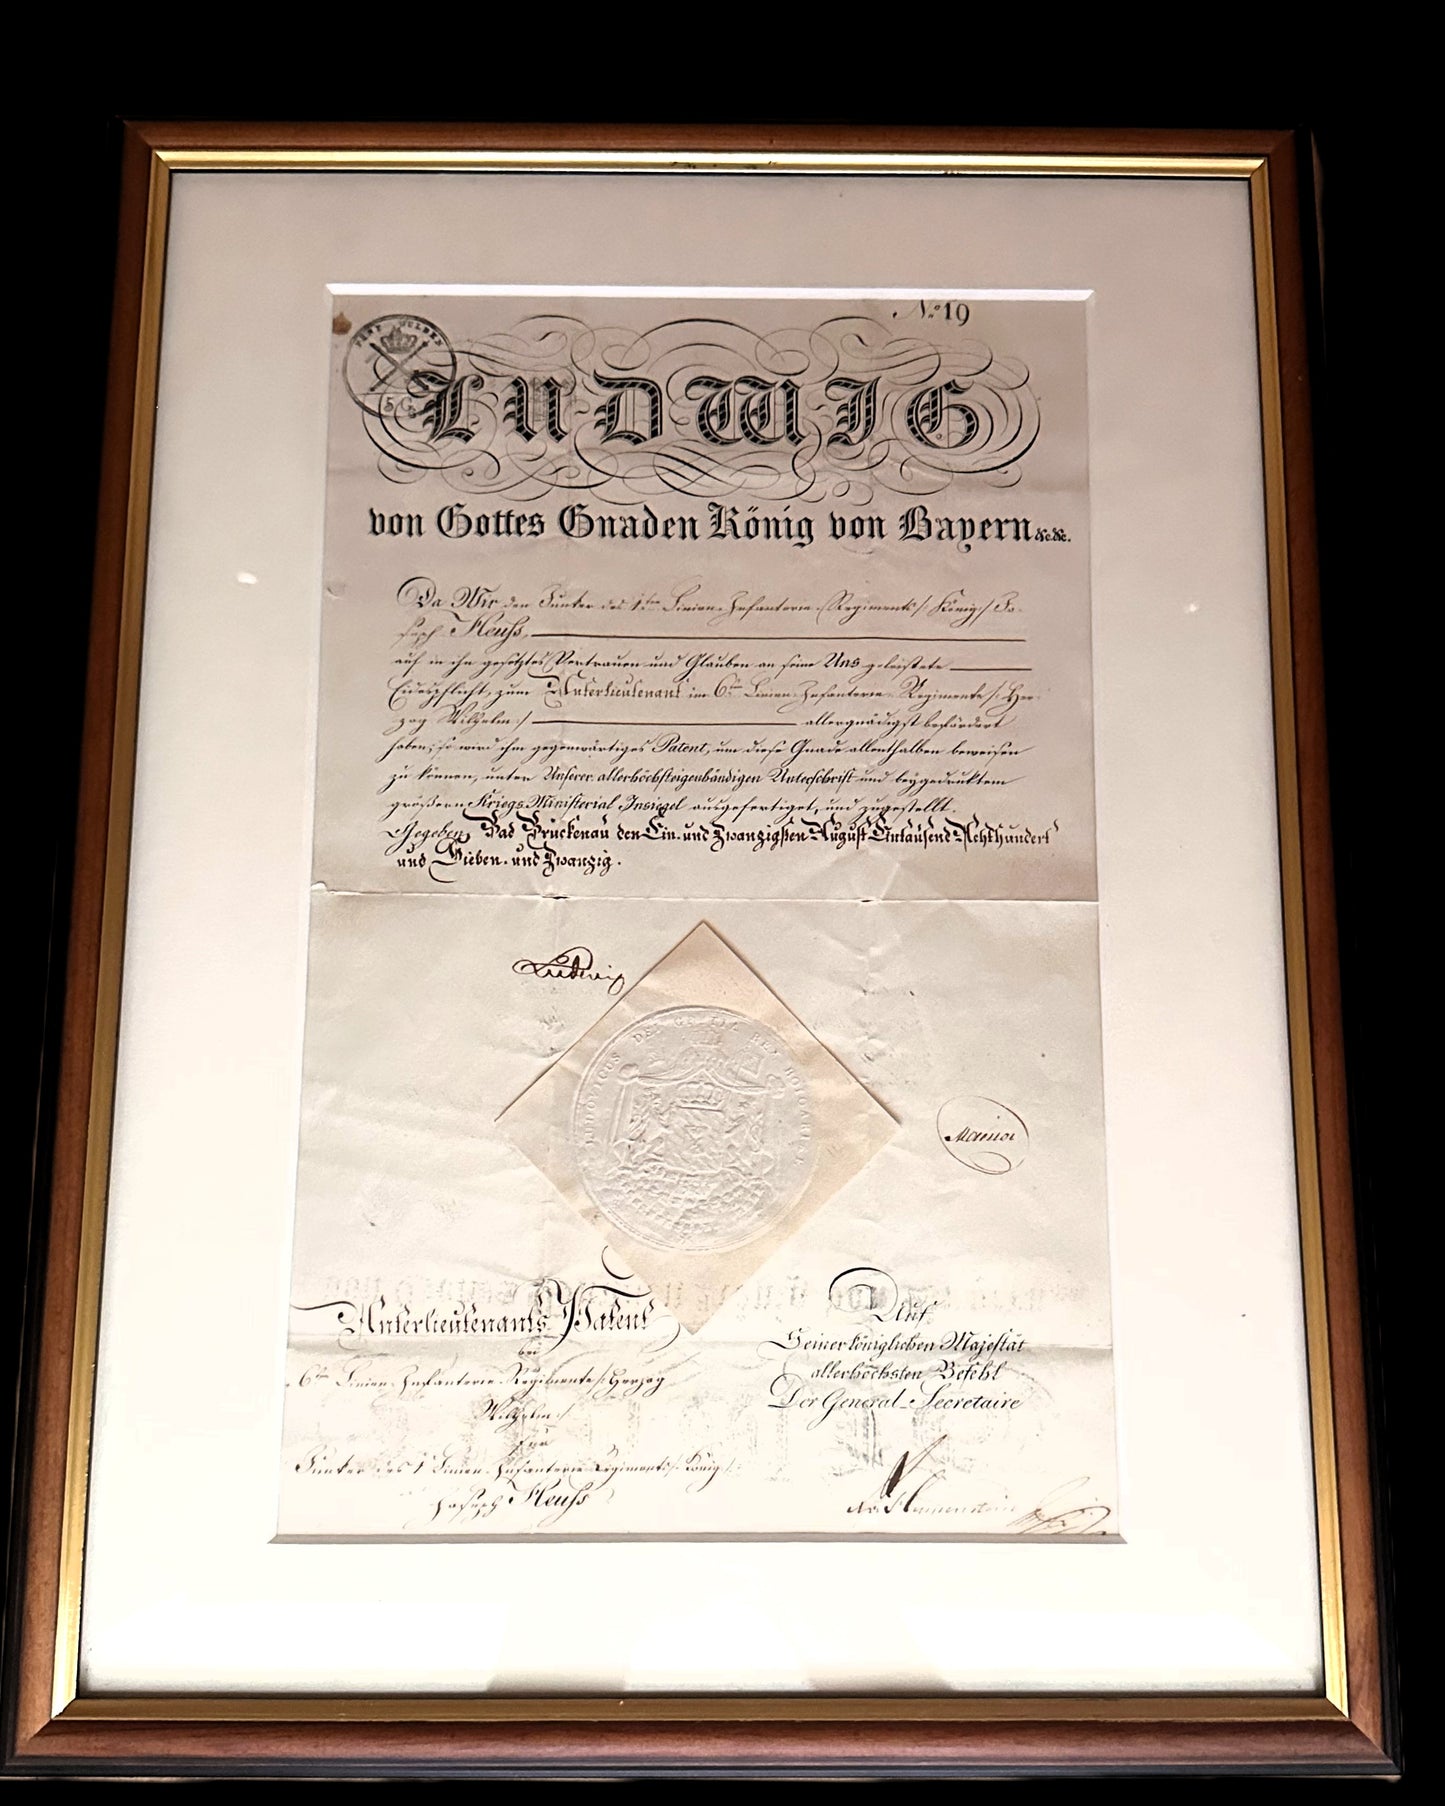 No. 19
FÜNF GULDEN
5 G
LUDWIG
von Gottes Gnaden König von Bayern &c. &c.
Da Wir den Junker des 1ten Linien-Infanterie-Regiments /: König :/ Jo-
seph Heuss,
auf in ihn gesetztes Vertrauen und Glauben an seine Uns geleistete
Eidespflicht, zum Unterlieutenant im 6ten Linien-Infanterie-Regimente /: Her-
zog Wilhelm :/ allergnädigst befördert
haben; so wird ihm gegenwärtiges Patent, um diese Gnade allenthalben beweisen
zu können, unter Unserer allerhöchsteigenhändigen Unterschrift und beygedruktem
größern Kriegs-Ministerial-Insiegel ausgefertiget, und zugestellt.
Gegeben, Bad Brückenau den Ein- und Zwanzigsten August Eintausend Achthundert
und Sieben- und Zwanzig.
Ludwig
LUDOVICUS DEI GRATIA REX BOIOARIAE
Unterlieutenants-Patent
bei
6ten Linien-Infanterie-Regimente /: Herzog
Wilhelm :/
für
Junker des 1. Linien-Infanterie-Regiments /: König :/
Joseph Heuss
Auf
Seiner königlichen Majestät
allerhöchsten Befehl
Der General-Secretaire